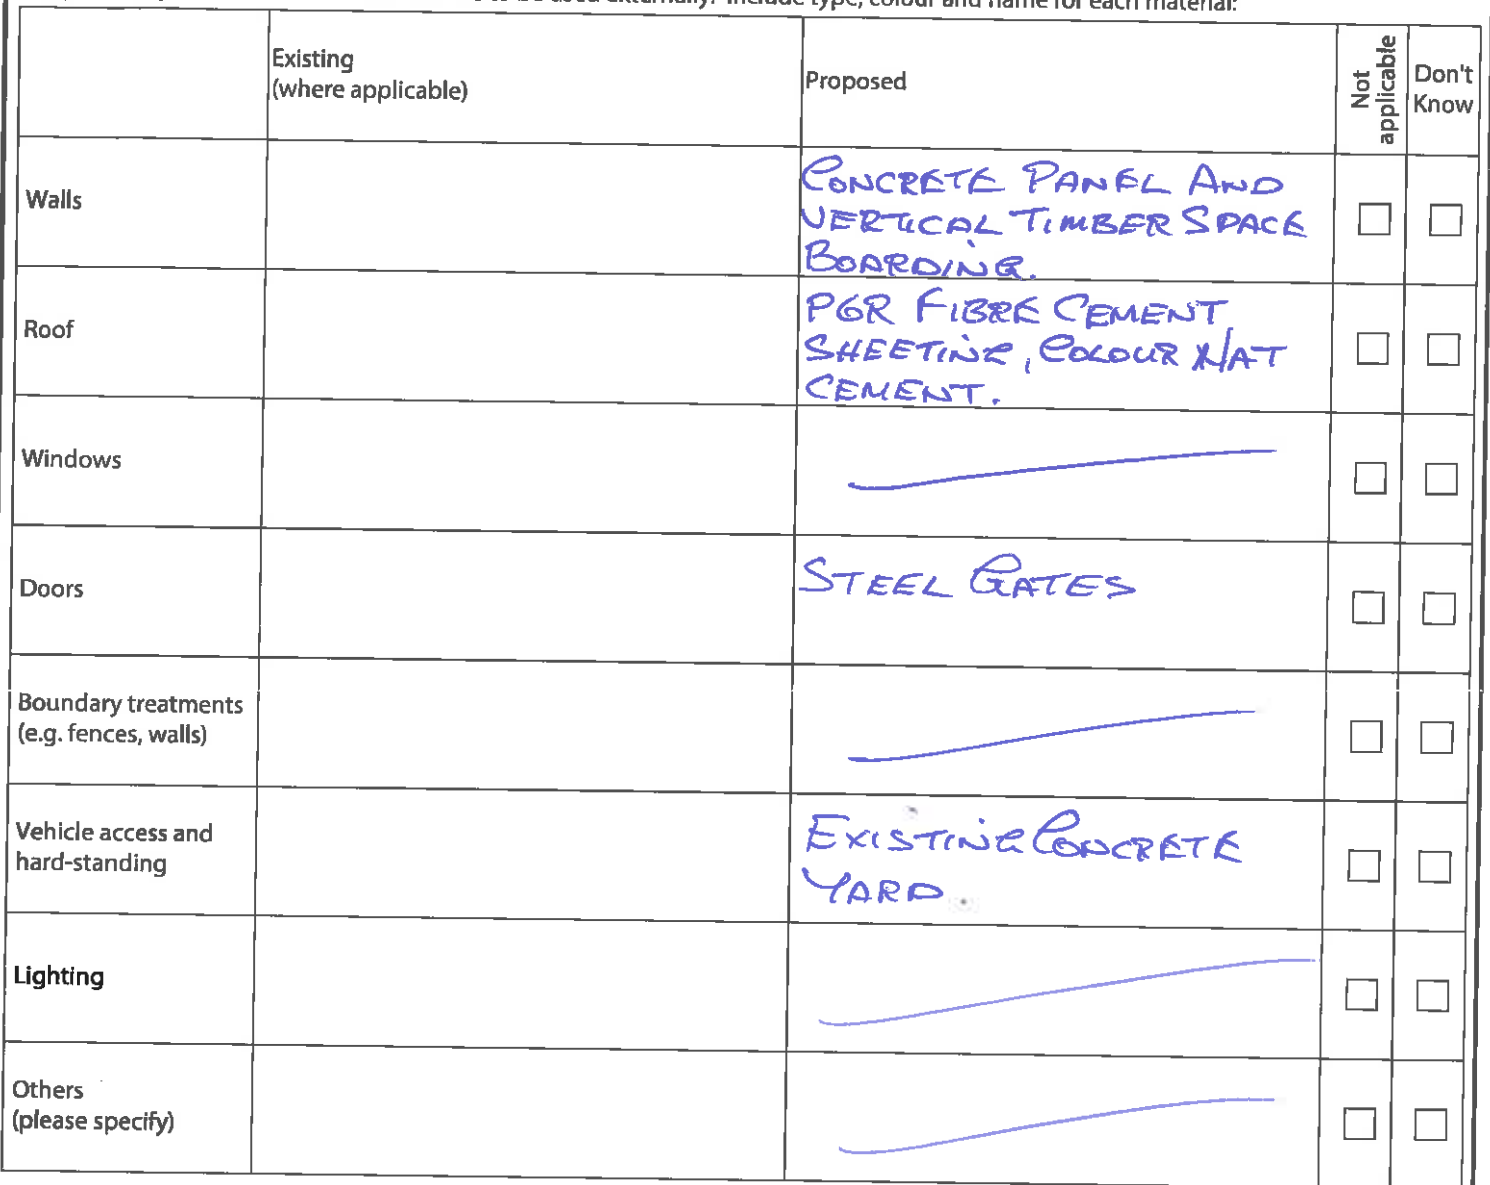 to be used externally? Include type, colour and name for each material:
Existing
(where applicable)
Proposed
Not
applicable
Don't
Know
Walls
CONCRETE PANEL AND
VERTICAL TIMBER SPACE
BOARDING.
Roof
PGR FIBRE CEMENT
SHEETING, COLOUR NAT
CEMENT.
Windows
Doors
STEEL GATES
Boundary treatments
(e.g. fences, walls)
Vehicle access and
hard-standing
EXISTING CONCRETE
YARD.
Lighting
Others
(please specify)